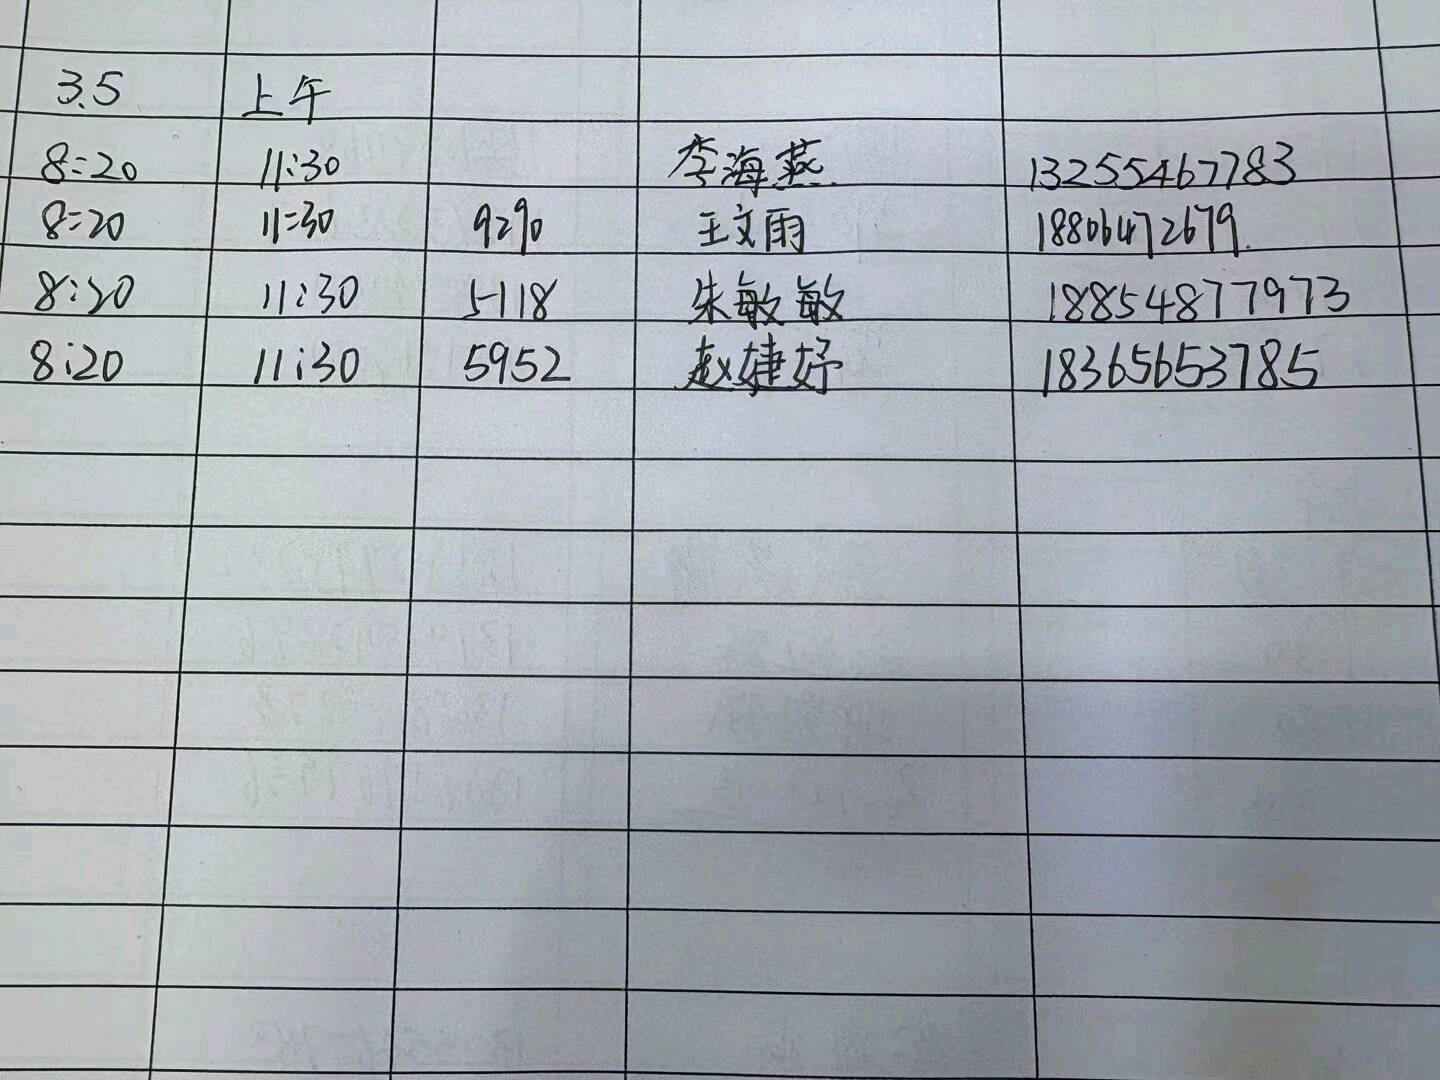 3.5 上午
8:20 11:30 李海燕 13255467783
8:20 11:30 9290 王文雨 18806472679.
8:20 11:30 5118 朱敏敏 18854877973
8:20 11:30 5952 赵婕妤 18365653785